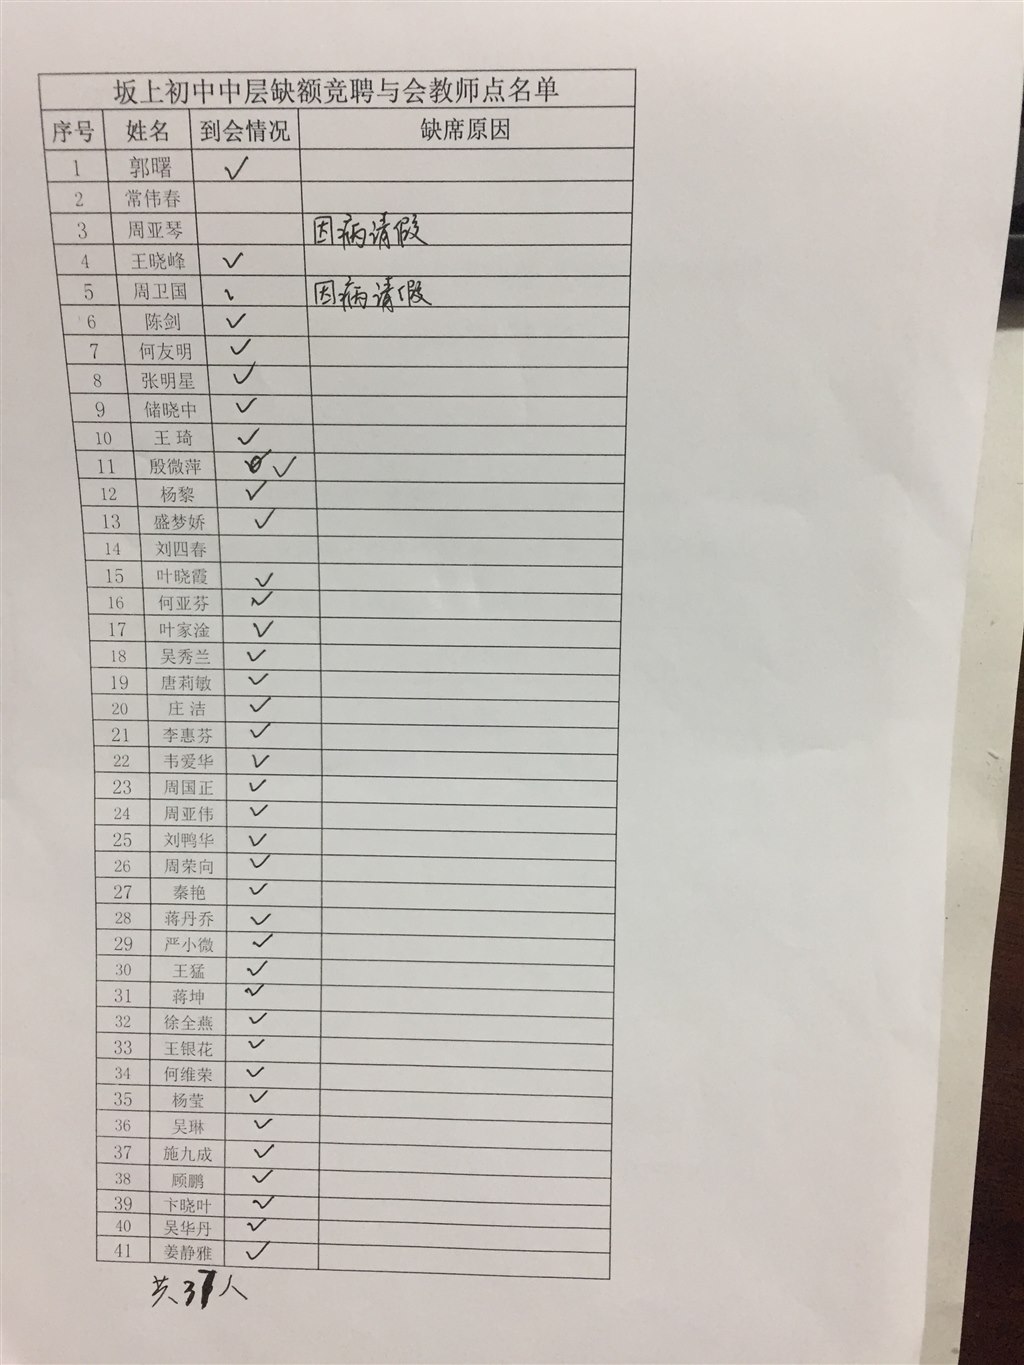 坂上初中中层缺额竞聘与会教师点名单
序号 姓名 到会情况 缺席原因
1 郭曙 ✓
2 常伟春
3 周亚琴 因病请假
4 王晓峰 ✓
5 周卫国 因病请假
6 陈剑 ✓
7 何友明 ✓
8 张明星 ✓
9 储晓中 ✓
10 王琦 ✓
11 殷微萍 ✓
12 杨黎 ✓
13 盛梦娇 ✓
14 刘四春
15 叶晓霞 ✓
16 何亚芬 ✓
17 叶家淦 ✓
18 吴秀兰 ✓
19 唐莉敏 ✓
20 庄洁 ✓
21 李惠芬 ✓
22 韦爱华 ✓
23 周国正 ✓
24 周亚伟 ✓
25 刘鸭华 ✓
26 周荣向 ✓
27 秦艳 ✓
28 蒋丹乔 ✓
29 严小微 ✓
30 王猛 ✓
31 蒋坤 ✓
32 徐全燕 ✓
33 王银花 ✓
34 何维荣 ✓
35 杨莹 ✓
36 吴琳 ✓
37 施九成 ✓
38 顾鹏 ✓
39 卞晓叶 ✓
40 吴华丹 ✓
41 姜静雅 ✓
共37人